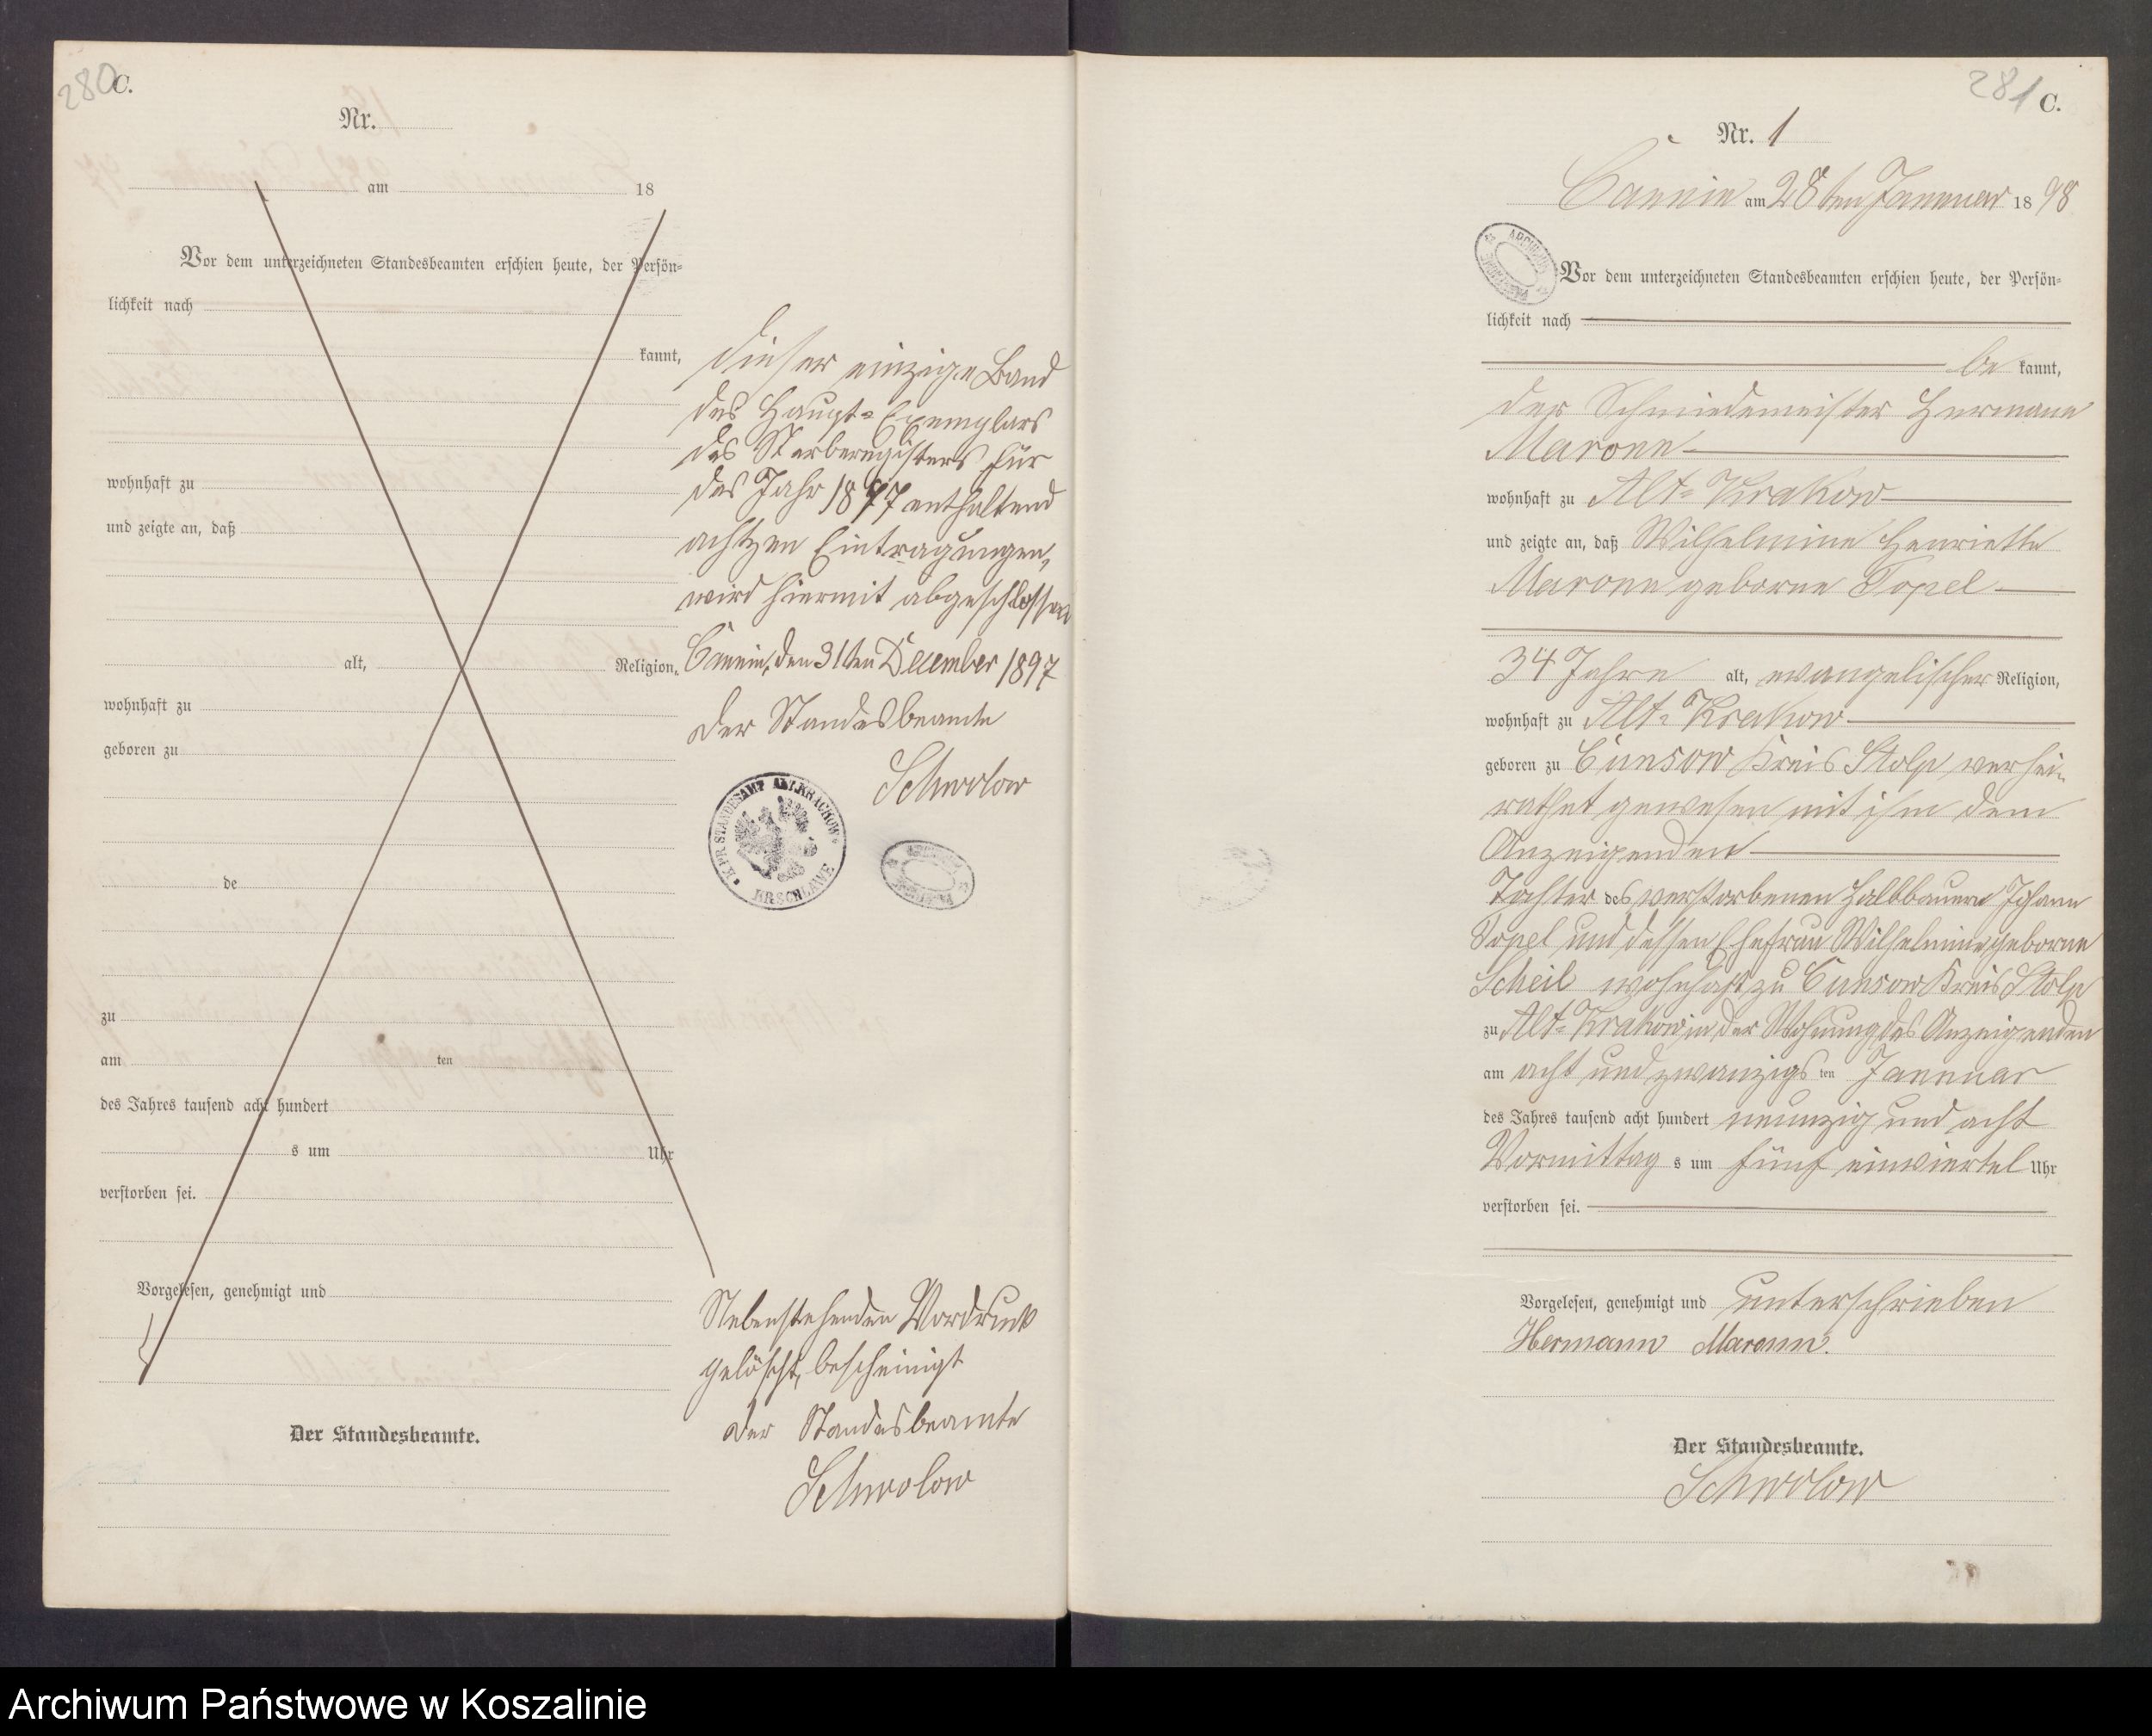 280 C.
Nr.
am 18
Vor dem unterzeichneten Standesbeamten erschien heute, der Persön=
lichkeit nach
kannt,
wohnhaft zu
und zeigte an, daß
alt, Religion,
wohnhaft zu
geboren zu
de
zu
am ten
des Jahres tausend acht hundert
s um Uhr
verstorben sei.
Vorgelesen, genehmigt und
Der Standesbeamte.
Dieser einzige Band
des Haupt=Exemplars
des Sterberegisters für
das Jahr 1897 enthaltend
achtzen Eintragungen,
wird hiermit abgeschlossen
Cannin, den 31ten December 1897
Der Standesbeamte
Schwolow
K. PR. STANDESAMT ALT.KRACKOW
KR SCHLAWE
Nebenstehenden Vordruck
gelöscht, bescheinigt
Der Standesbeamte
Schwolow
281 C.
Nr. 1
Cannin am 28ten Januar 1898
ARCHIWUM
Vor dem unterzeichneten Standesbeamten erschien heute, der Persön=
lichkeit nach
be kannt,
der Schmiedemeister Hermann
Maronn
wohnhaft zu Alt=Krakow
und zeigte an, daß Wilhelmine Henriette
Maronn geborne Topel
34 Jahre alt, evangelischer Religion,
wohnhaft zu Alt=Krakow
geboren zu Cunsow Kreis Stolp verhei=
rathet gewesen mit ihm dem
Anzeigenden
Tochter des verstorbenen Halbbauern Johann
Topel und dessen Ehefrau Wilhelmine geborne
Scheil wohnhaft zu Cunsow Kreis Stolp
zu Alt=Krakow in der Wohnung des Anzeigenden
am acht und zwanzigs ten Januar
des Jahres tausend acht hundert neunzig und acht
Vormittag s um fünf einviertel Uhr
verstorben sei.
Vorgelesen, genehmigt und unterschrieben
Hermann Maronn.
Der Standesbeamte.
Schwolow
Archiwum Państwowe w Koszalinie